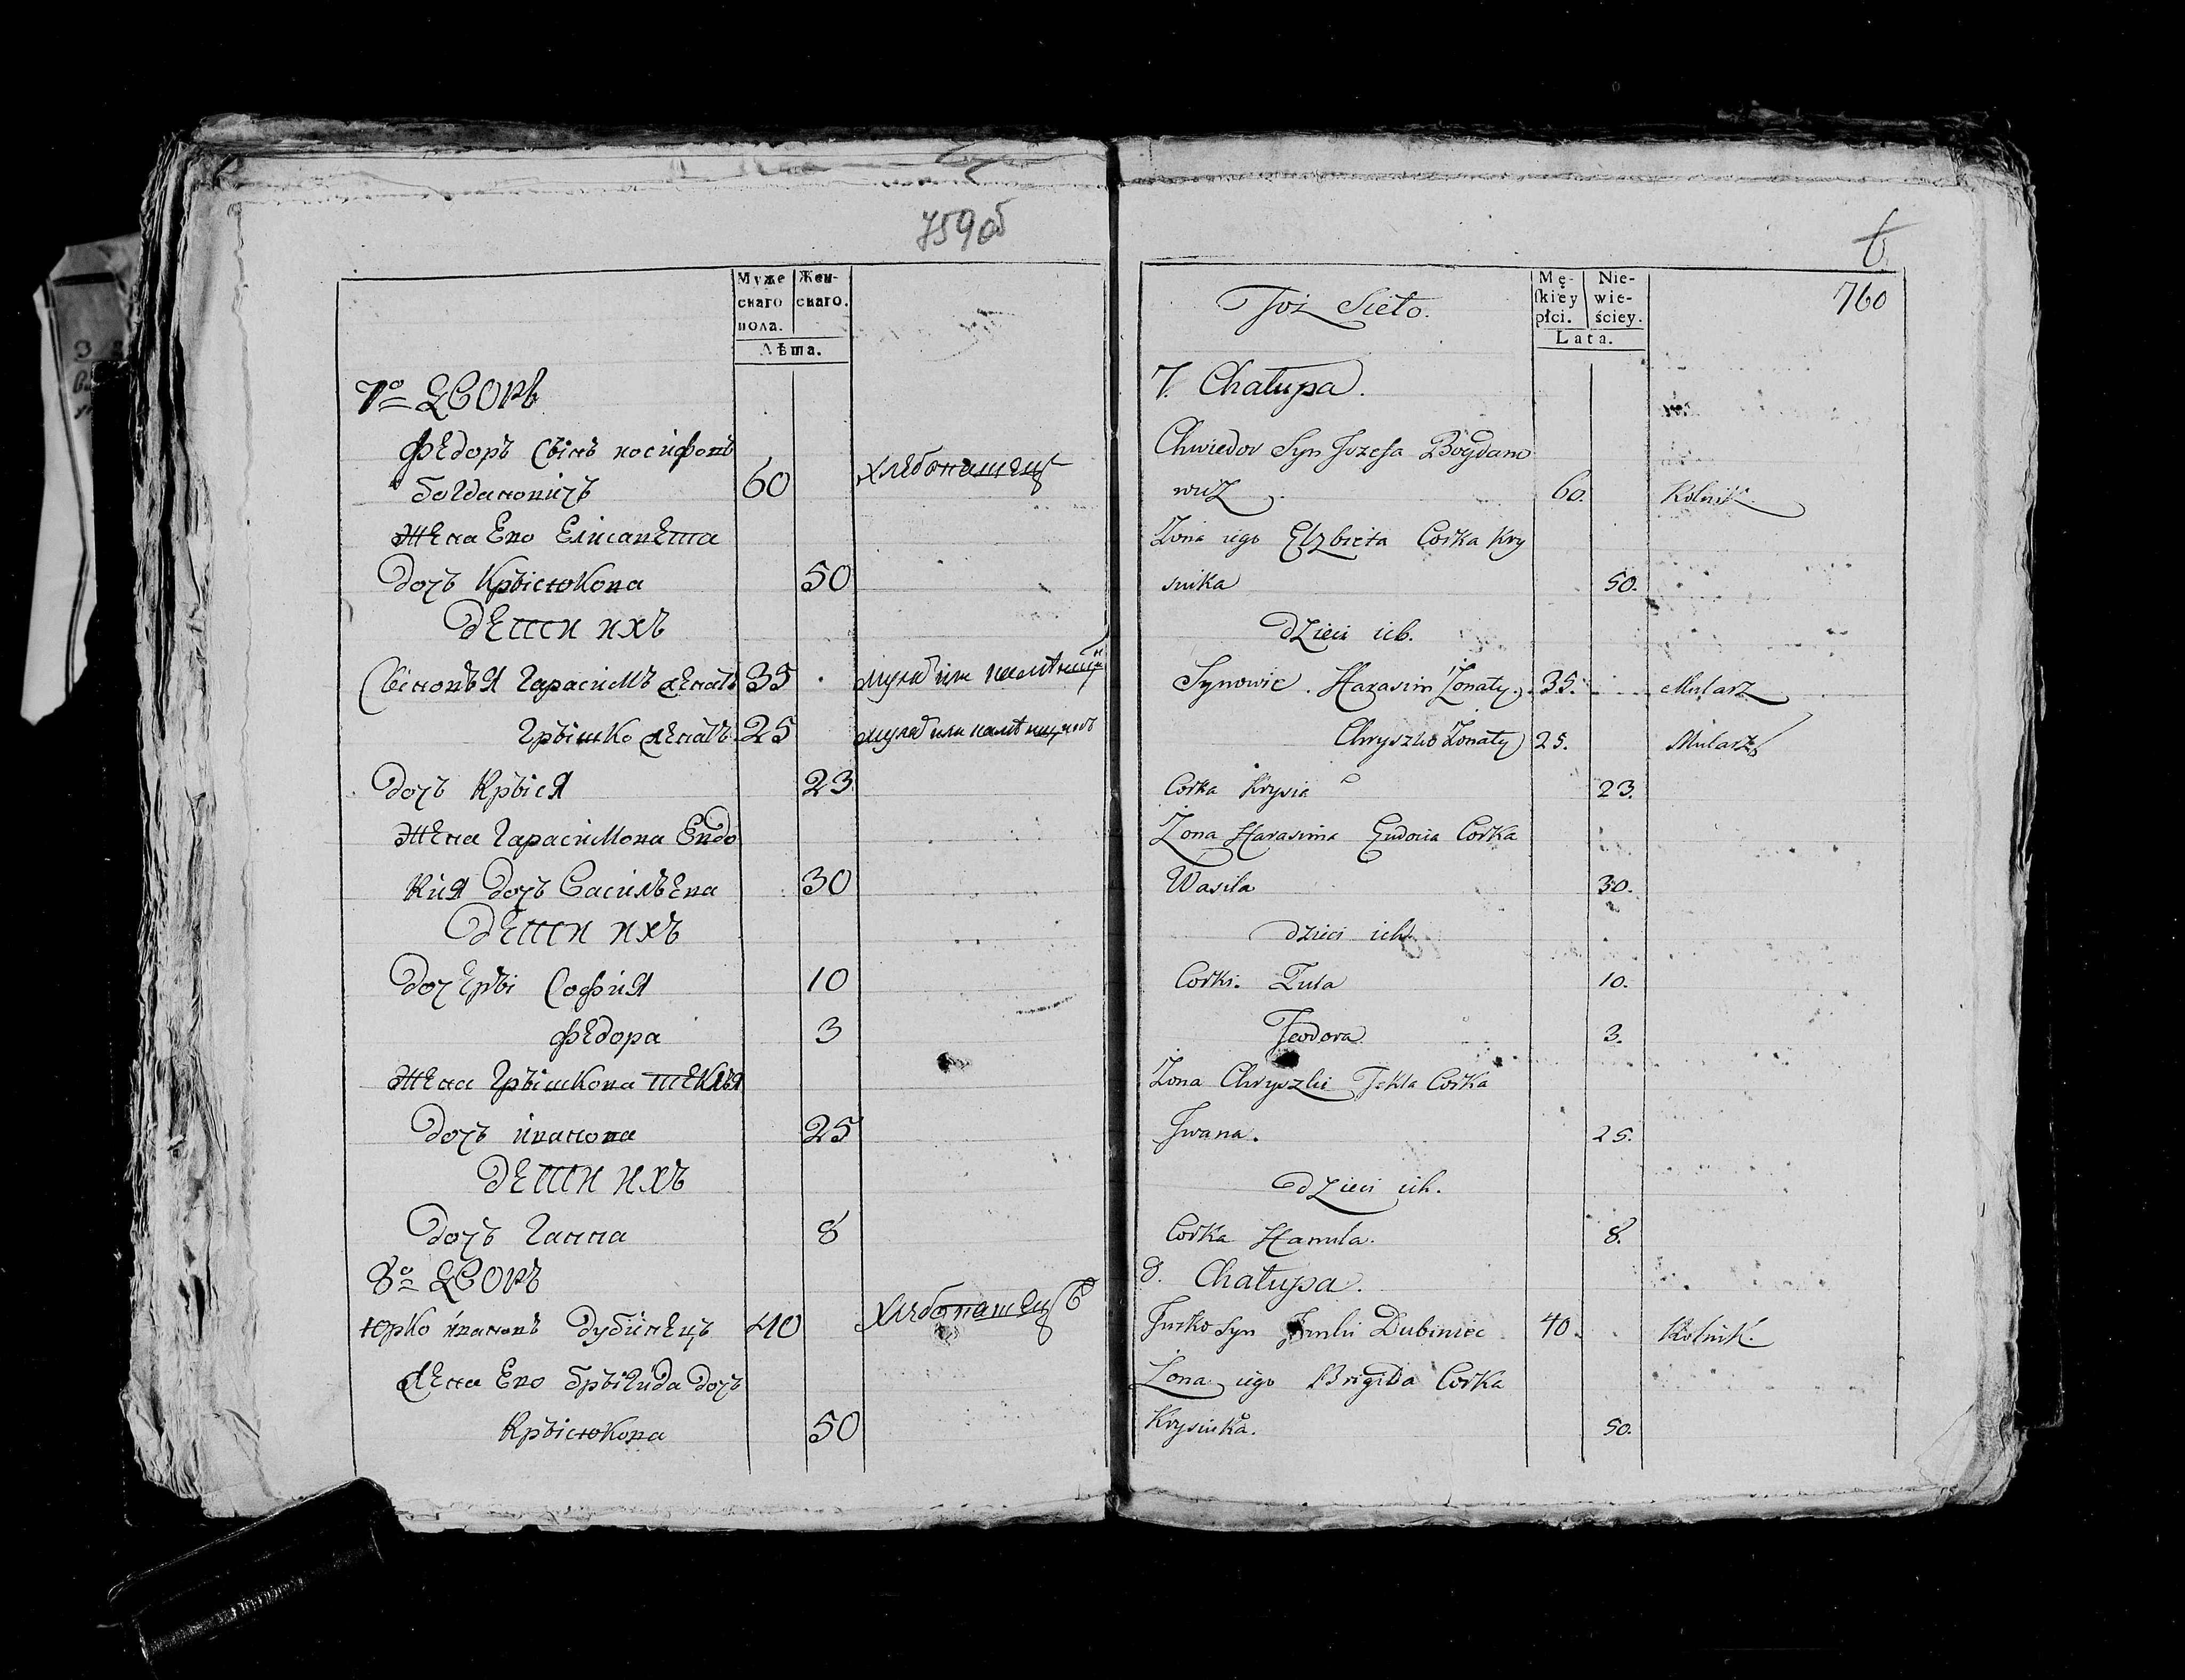 759об
Муже
скаго
пола.
Жен-
скаго.
Лѣта.
7о ДВОРЪ
Федоръ Сынъ иосифовъ
богдановичъ 60 хлебопашецъ
жена Ево Елисавета
дочъ Крысюкова 50
дети ихъ
Сыновья Гарасимъ женатъ 35 муляр или
Грышко женатъ 25 муляр или
дочъ Крыся 23
жена Гарасимова Евдо
кия дочъ Васильева 30
дети ихъ
дочеры София 10
Федора 3
жена Грышкова теклЯ
дочъ иванова 25
дети ихъ
дочъ Ганна 8
8о ДВОРЪ
юрко ивановъ дубинецъ 40 хлебопашецъ
жена Ево брыгида дочъ
Крысюкова 50
6
760
Toż Sioło.
Mę-
skiey
płci.
Nie-
wie-
ściey.
Lata.
7. Chałupa.
Chwiedor Syn Jozefa Bogdano
wicz 60. Rolnik.
Zona iego Elzbieta Corka Kry
siuka 50.
Dzieci ich.
Synowie. Harasim Zonaty. 35. Mularz
Chryszko Zonaty 25. Mularz
Corka Krysia 23.
Zona Harasima Eudocia Corka
Wasila 30.
Dzieci ich
Corki. Zula 10.
Teodora 3.
Zona Chryszki Tekla Corka
Iwana. 25.
Dzieci ich.
Corka Hanula. 8.
8. Chałupa.
Jurko Syn Dubiniec 40. Rolnik.
Zona iego Brigida Corka
Krysiuka. 50.